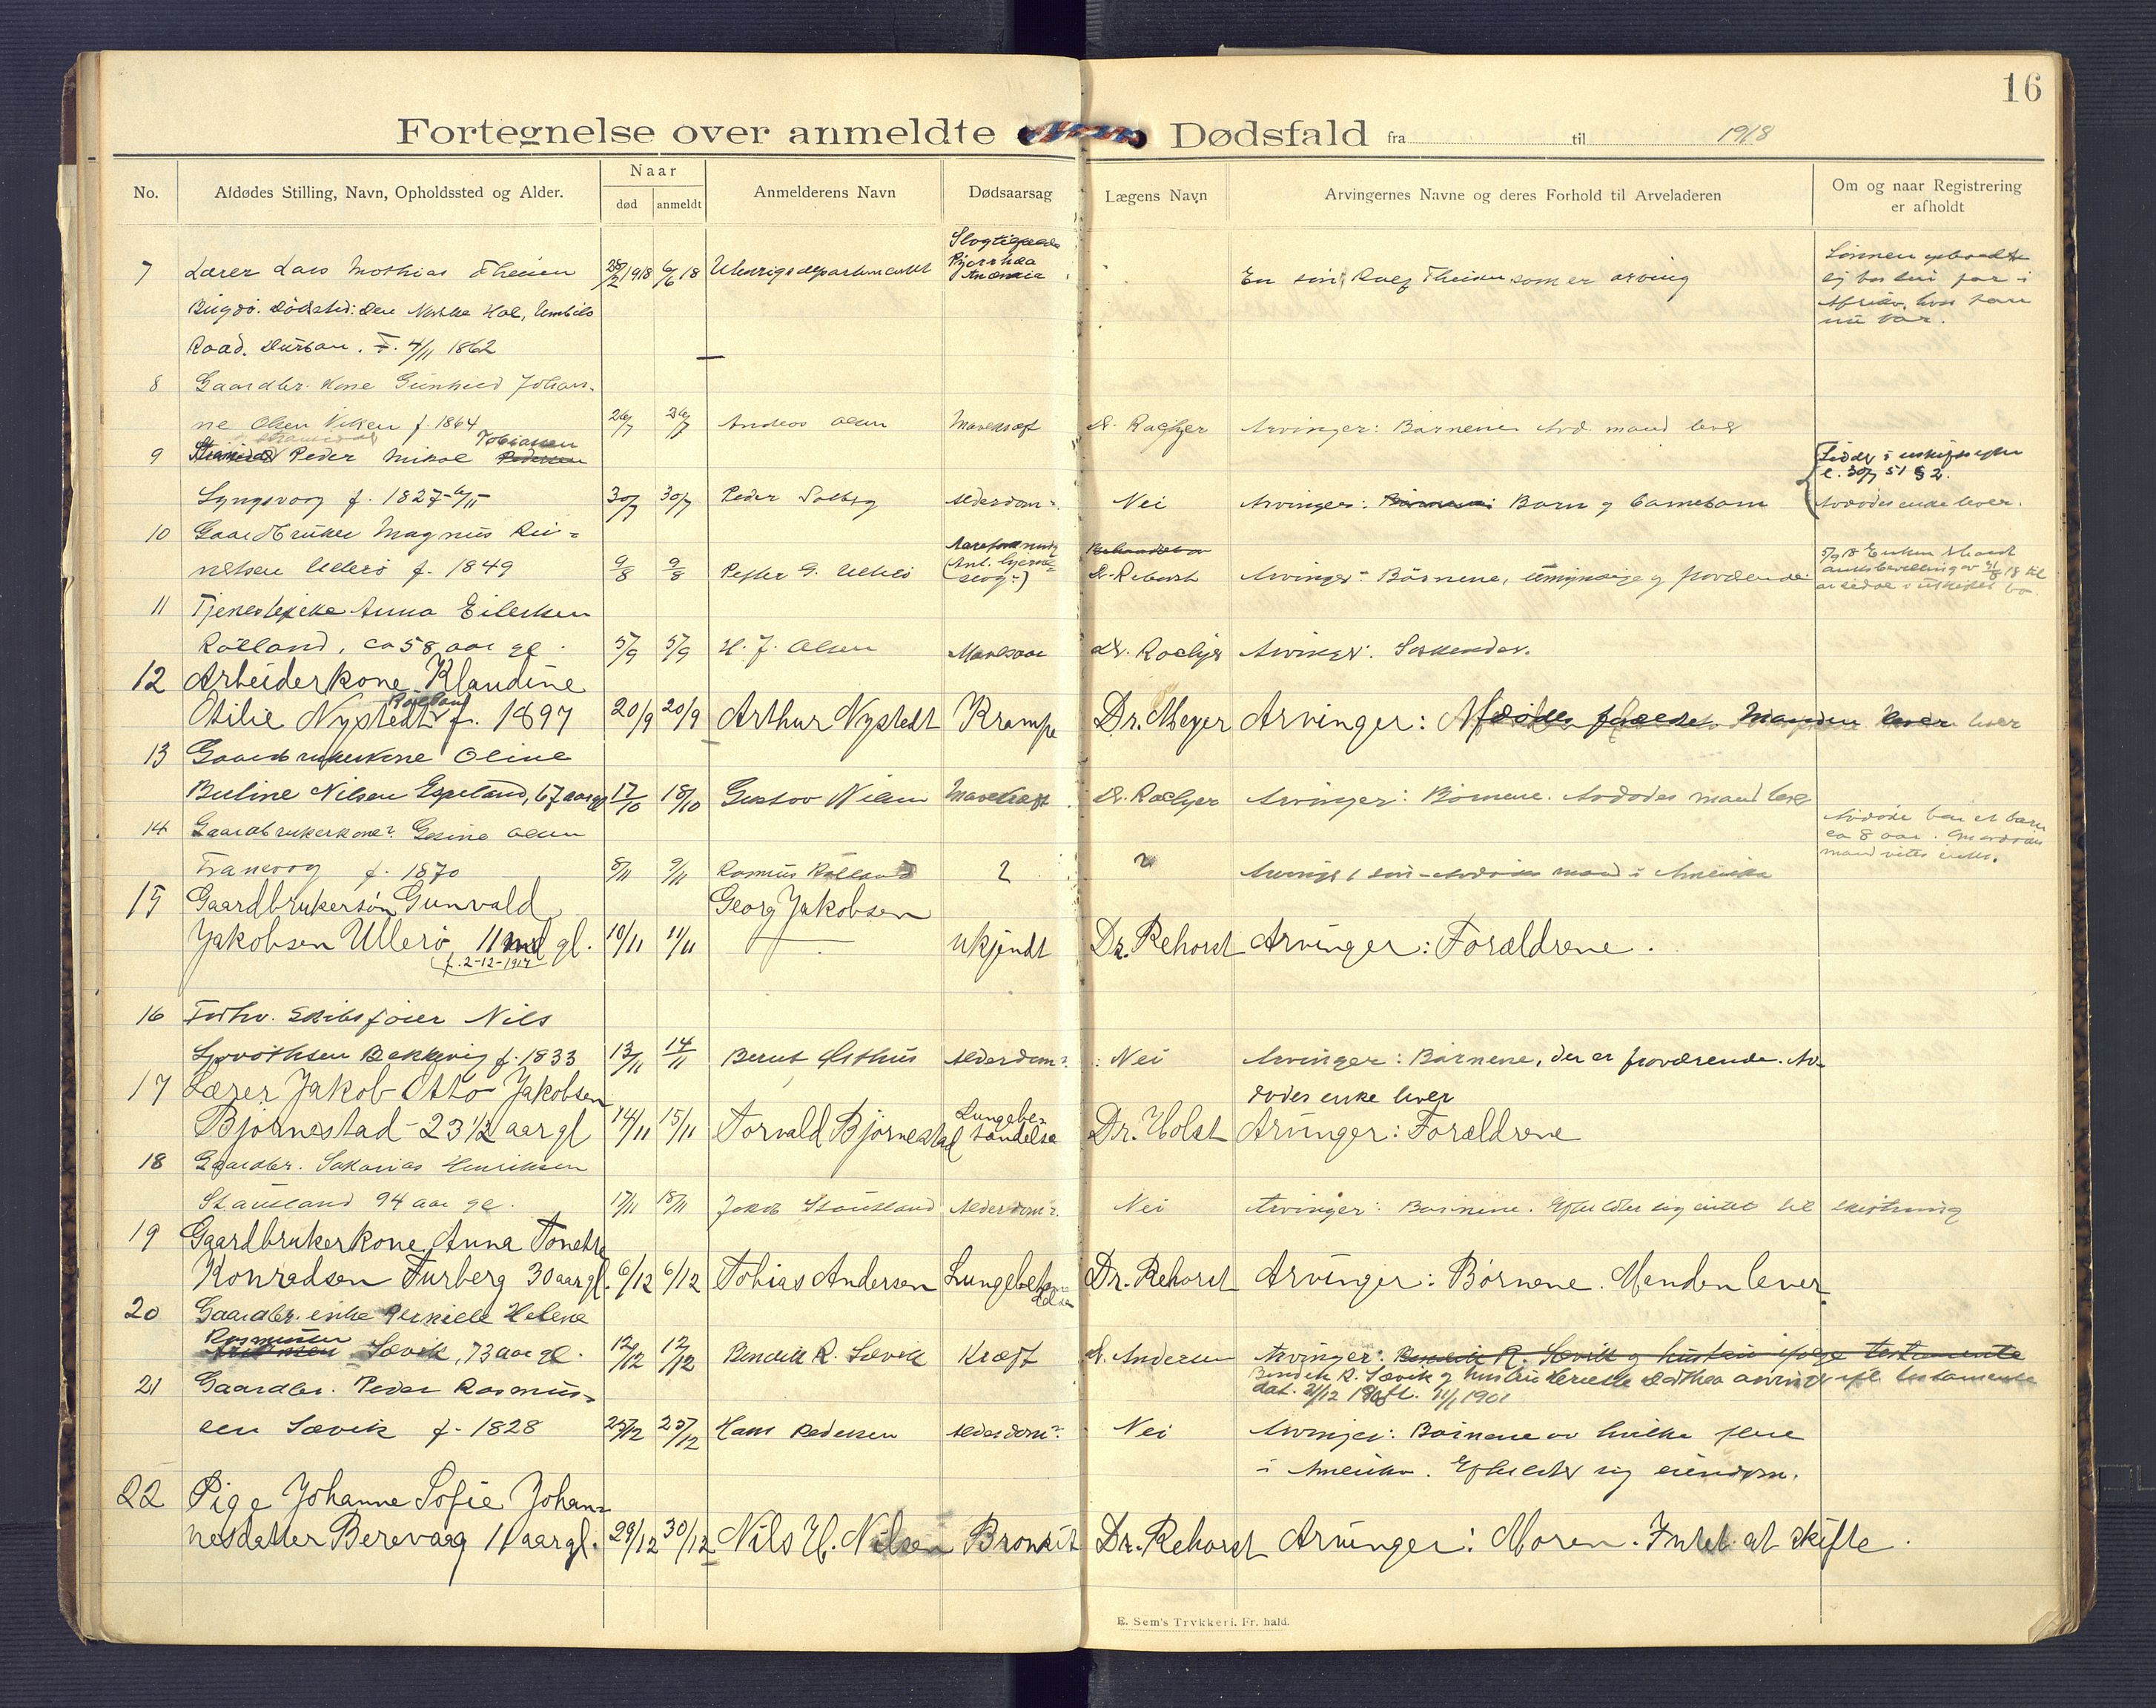 16
Fortegnelse over anmeldte Dødsfald fra til 1918
No. Afdødes Stilling, Navn, Opholdssted og Alder. Naar død anmeldt Anmelderens Navn Dødsaarsag Lægens Navn Arvingernes Navne og deres Forhold til Arveladeren Om og naar Registrering er afholdt
7 Lærer Lars Mathias Theien 28/2 1918 6/6 18 Utenrigsdepartementet Anæmia En søn, Rolf Theien som er arving
Bugdø. Dødssted: Den Norske Hal, Umbilo
Road. Durban. F. 4/11 1862
8 Gaardbr. kone Gunhild Johan-
ne Olsen Viken f. 1864 26/7 26/7 Anders Olsen Mavekræft Arvinger: Børnene Avd. mand lever
9 Peder Mikal Pedersen Tobiassen
Lyngsvog f. 1827 30/7 30/7 Peder Solberg Alderdom Nei Arvinger: Børnene: Barn og barnebarn Avdødes enke lever.
10 Gaardbruker Magnus Rei-
nertsen Ullerø f. 1849 9/8 9/8 Peder G. Ullerø Dr. Rehorst Arvinger: Børnene, umyndige og fraværende
11 Tjenestepike Anna Eilertsen
Rølland, ca 58 aar gl. 5/9 5/9 H. J. Olsen Mavesaar Arvinger: Søskender.
12 Arbeiderkone Klaudine
Otilie Nystedt Rølland f. 1897 20/9 20/9 Arthur Nystedt Krampe Dr. Meyer Arvinger: Afdødes forældre Manden lever lever
13 Gaardbrukerkone Oline
Buline Nilsen Espeland, 67 aar gl 17/10 18/10 Gustav Nilsen Mavekræft Arvinger: Børnene. Avdødes mand lever
14 Gaardbrukerkone Gesine Olsen
Tranevog f. 1870 8/11 9/11 Rasmus Rølland ? ? Arving 1 søn - Avdødes mand i Amerika
15 Gaardbrukersøn Gunvald Georg Jakobsen
Jakobsen Ullerø 11 md gl. 10/11 11/11 ukjendt Dr. Rehorst Arvinger: Forældrene.
f. 2-12-1917
16 Forhv. Skibsfører Nils
Bekkevig f. 1833 13/11 14/11 Bernt Østhus Alderdom Nei Arvinger: Børnene, der er fraværende. Av-
dødes enke lever
17 Lærer Jakob Otto Jakobsen
Bjørnestad 23 1/2 aar gl 14/11 15/11 Torvald Bjørnestad Lungebe-
tændelse Dr. Holst Arvinger: Forældrene
18 Gaardbr. Sakarias Henriksen
Stausland 94 aar gl. 17/11 18/11 Jakob Stausland Alderdom Nei Arvinger: Børnene. Efterlater sig intet til skiftning
19 Gaardbrukerkone Anna Tonette
Konradsen Furberg 30 aar gl. 6/12 6/12 Tobias Andersen Lungebetændelse Dr. Rehorst Arvinger: Børnene. Manden lever
20 Gaardbr. enke Pernille Helene
Rasmussen Sævik, 73 aar gl. 12/12 12/12 Bendik R. Sævik Kræft Dr. Andersen Arvinger: Bendik R. Sævik og hustru ifølge testamente
Bendik R. Sævik og hustru Dorthea arvinger ifl. testamente
21 Gaardbr. Peder Rasmus-
sen Sævik f. 1828 25/12 27/12 Hans Pedersen Alderdom Nei Arvinger: Børnene av hvilke flere
i Amerika. Efterlater sig eiendom.
22 Pige Johanne Sofie Johan-
nesdatter Berevaag 11 aar gl. 29/12 30/12 Nils H. Nilsen Bronkit Dr. Rehorst Arvinger: Moren. Intet at skifte.
E. Sem's Trykkeri. Fr. hald.